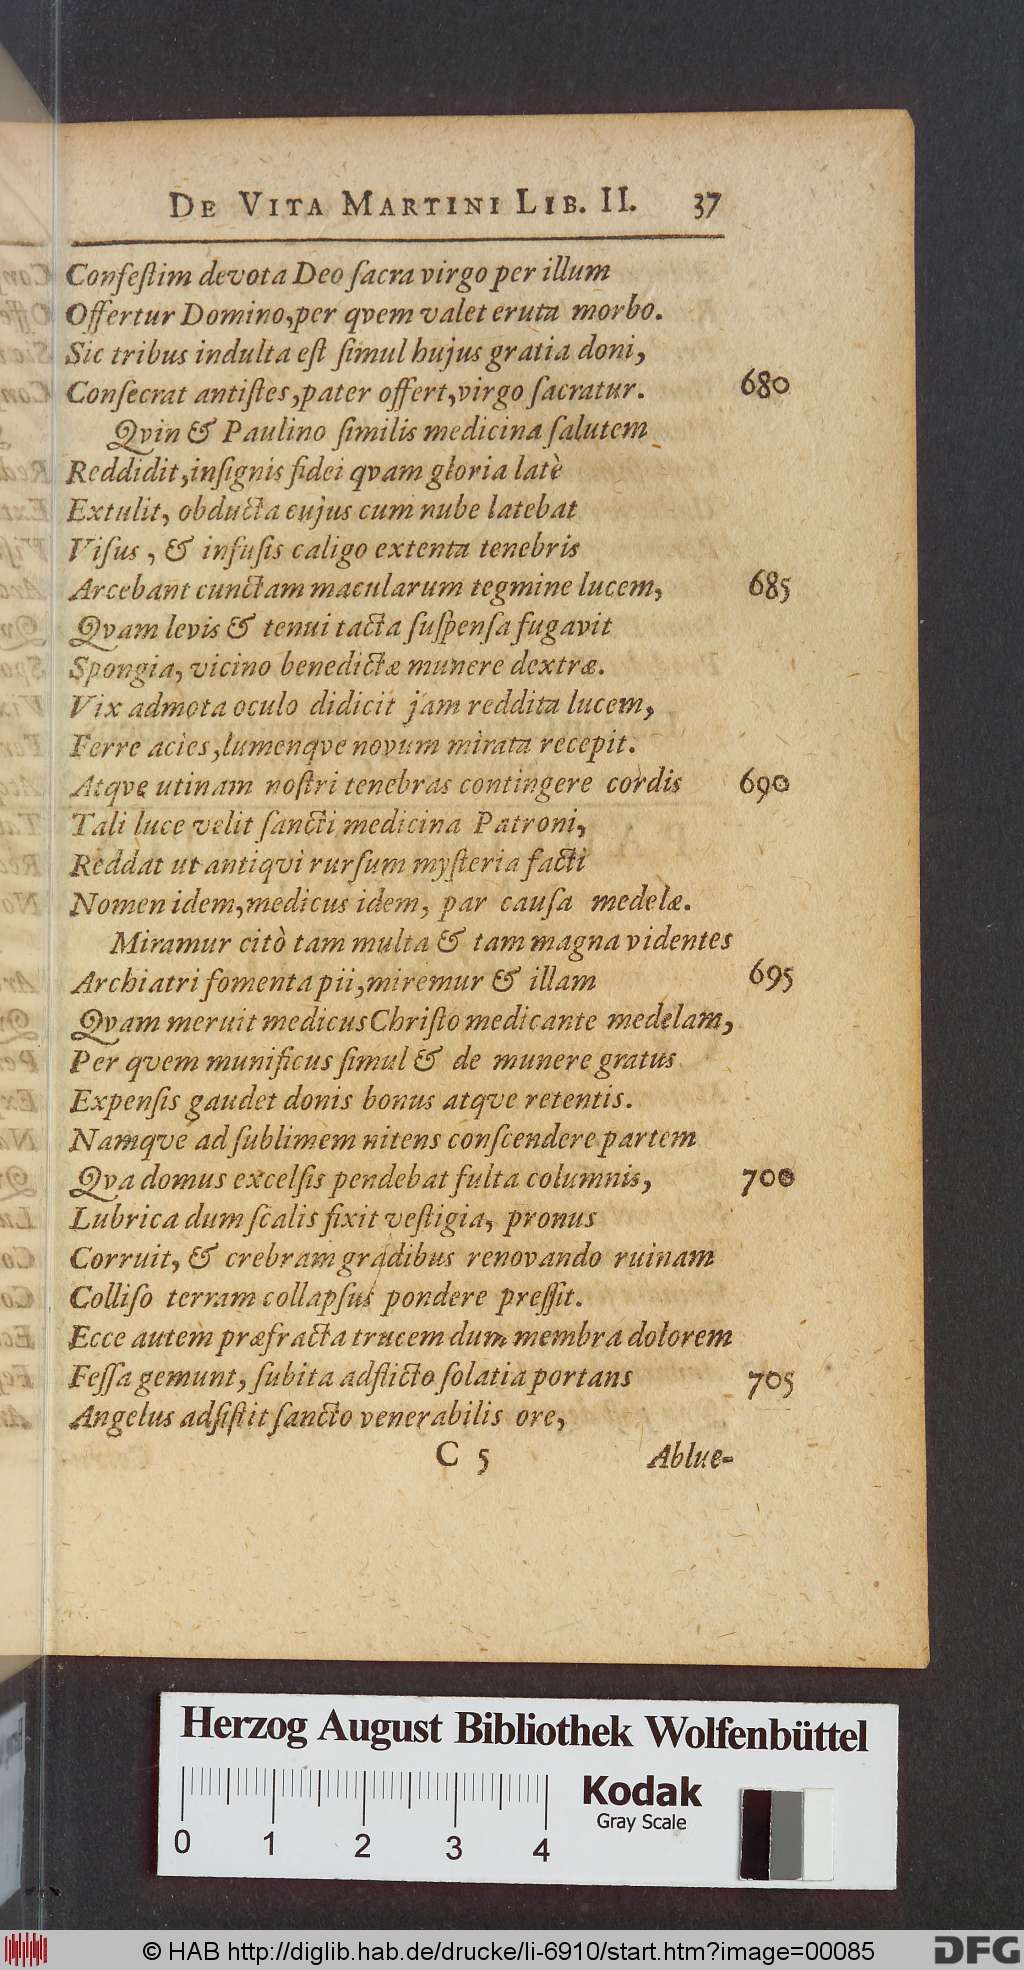 DE VITA MARTINI LIB. II. 37
Confeſtim devota Deo ſacra virgo per illum
Offertur Domino, per qvem valet eruta morbo.
Sic tribus indulta eſt ſimul hujus gratia doni,
Conſecrat antiſtes, pater offert, virgo ſacratur. 680
Qvin & Paulino ſimilis medicina ſalutem
Reddidit, inſignis fidei qvam gloria latè
Extulit, obducta cujus cum nube latebat
Viſus, & infuſis caligo extenta tenebris
Arcebant cunctam macularum tegmine lucem, 685
Qvam levis & tenui tacta ſuſpenſa fugavit
Spongia, vicino benedictæ munere dextræ.
Vix admota oculo didicit jam reddita lucem,
Ferre acies, lumenqve novum mirata recepit.
Atqve utinam noſtri tenebras contingere cordis 690
Tali luce velit ſancti medicina Patroni,
Reddat ut antiqvi rurſum myſteria facti
Nomen idem, medicus idem, par cauſa medelæ.
Miramur citò tam multa & tam magna videntes
Archiatri fomenta pii, miremur & illam 695
Qvam meruit medicus Chriſto medicante medelam,
Per qvem munificus ſimul & de munere gratus
Expenſis gaudet donis bonus atqve retentis.
Namqve ad ſublimem nitens conſcendere partem
Qva domus excelſis pendebat fulta columnis, 700
Lubrica dum ſcalis fixit veſtigia, pronus
Corruit, & crebram gradibus renovando ruinam
Colliſo terram collapſus pondere preſſit.
Ecce autem præfracta trucem dum membra dolorem
Feſſa gemunt, ſubita adflicto ſolatia portans 705
Angelus adſiſtit ſancto venerabilis ore,
C 5 Ablue-
Herzog August Bibliothek Wolfenbüttel
Kodak
Gray Scale
0 1 2 3 4
© HAB http://diglib.hab.de/drucke/li-6910/start.htm?image=00085
DFG